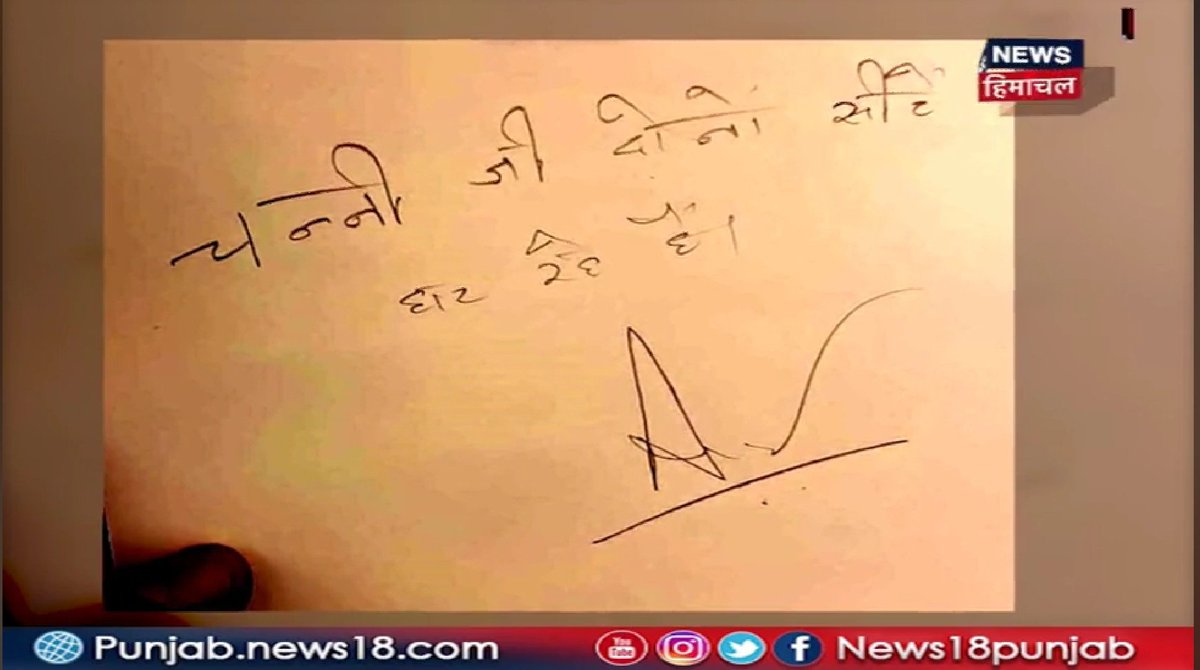 NEWS
हिमाचल
चन्नी जी दोनों सीटें
हार रहे हैं।
Punjab.news18.com
You
Tube
News18punjab